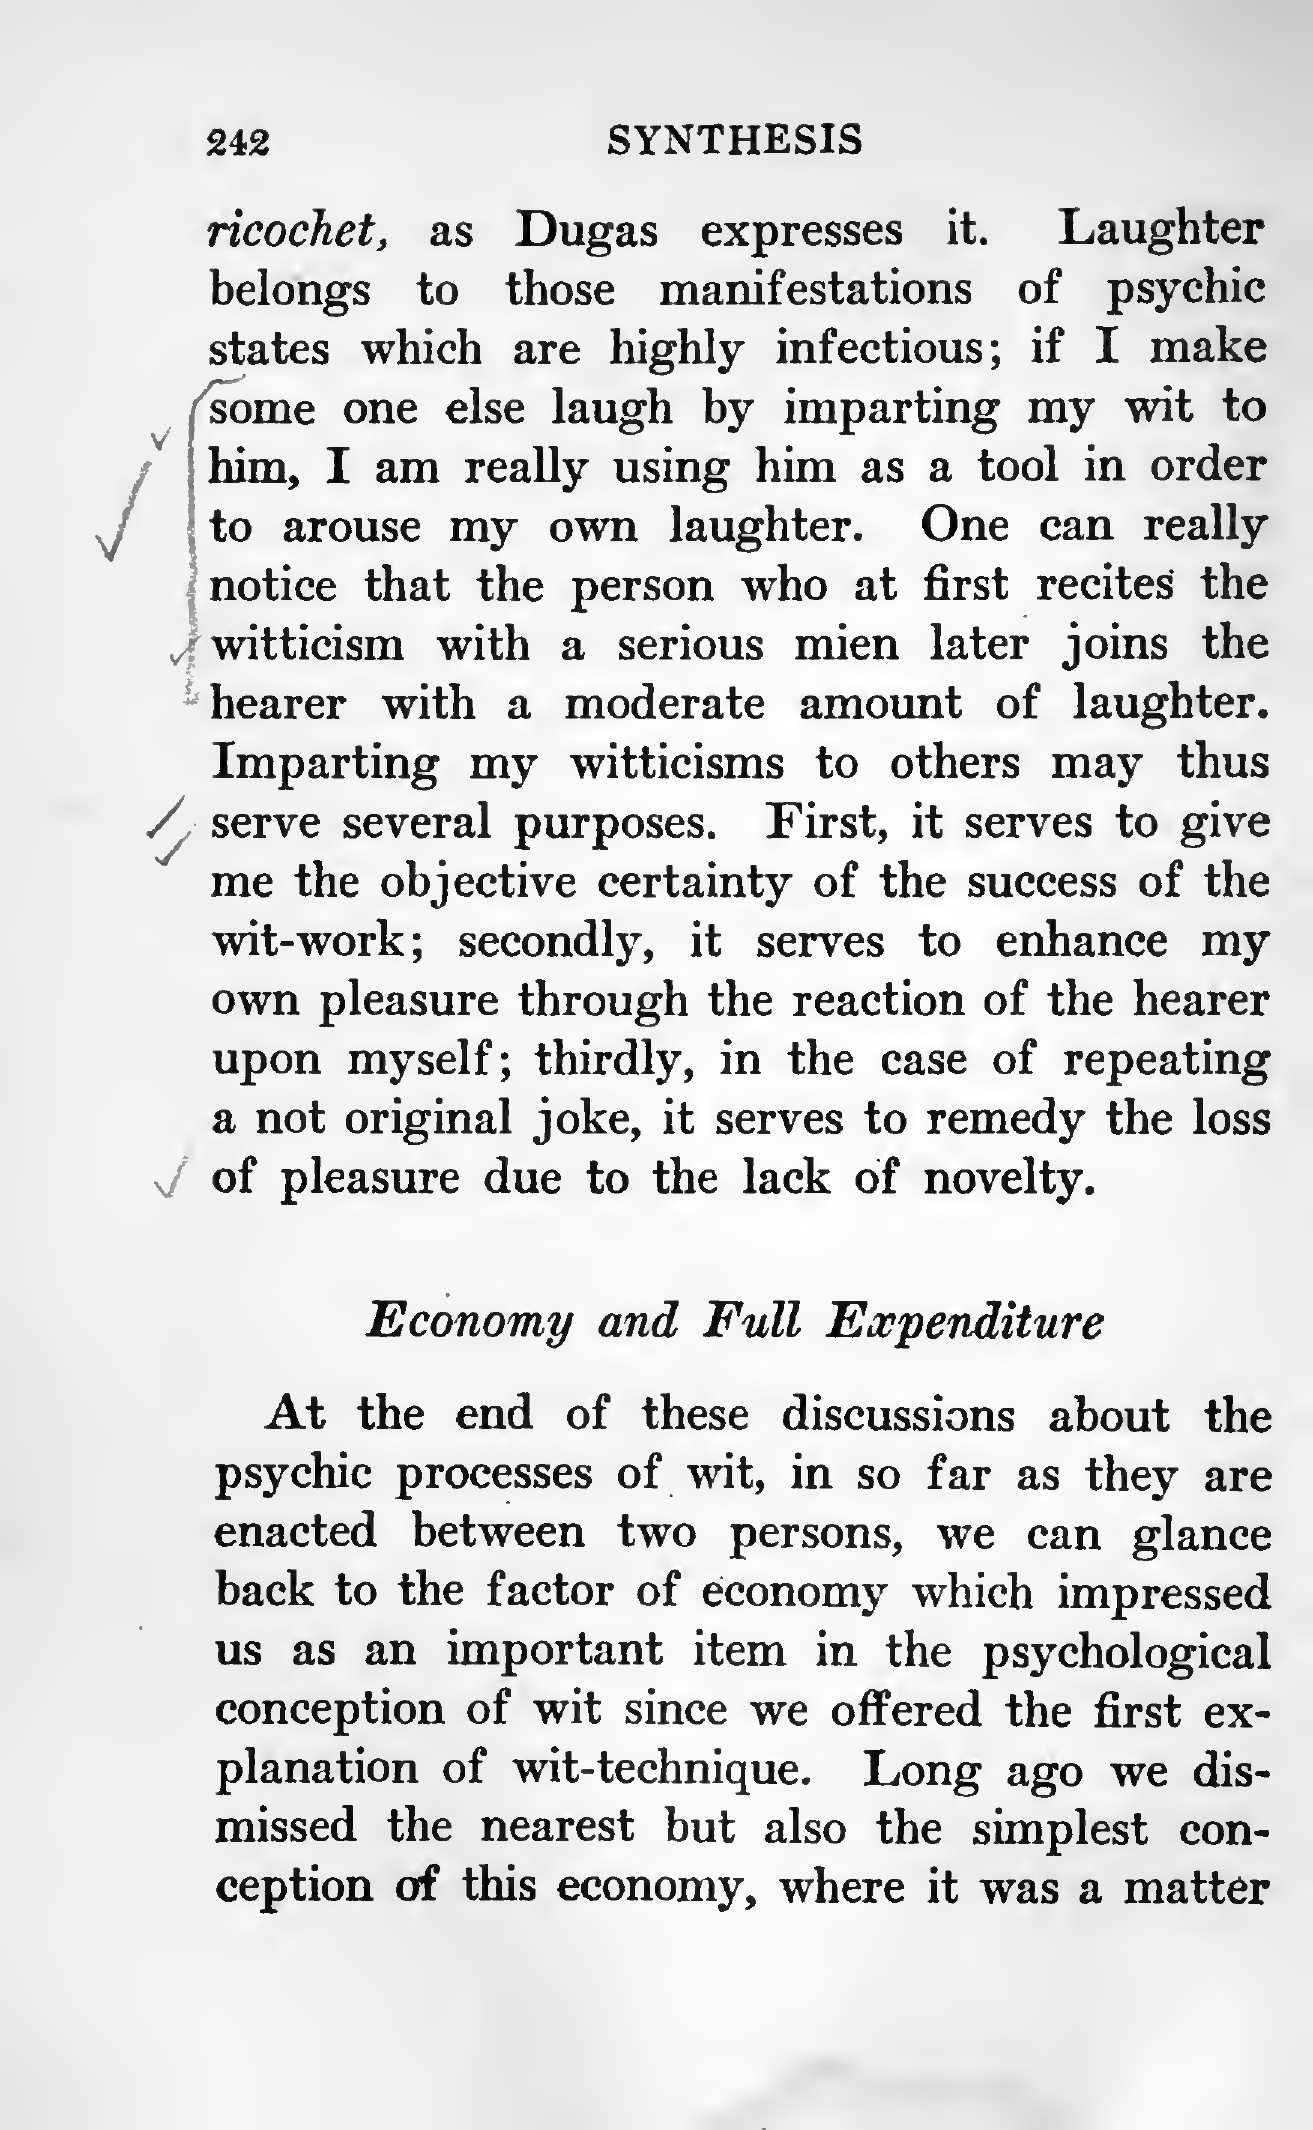 242 SYNTHESIS
ricochet, as Dugas expresses it. Laughter
belongs to those manifestations of psychic
states which are highly infectious; if I make
some one else laugh by imparting my wit to
him, I am really using him as a tool in order
to arouse my own laughter. One can really
notice that the person who at first recites the
witticism with a serious mien later joins the
hearer with a moderate amount of laughter.
Imparting my witticisms to others may thus
serve several purposes. First, it serves to give
me the objective certainty of the success of the
wit-work; secondly, it serves to enhance my
own pleasure through the reaction of the hearer
upon myself; thirdly, in the case of repeating
a not original joke, it serves to remedy the loss
of pleasure due to the lack of novelty.
Economy and Full Expenditure
At the end of these discussions about the
psychic processes of wit, in so far as they are
enacted between two persons, we can glance
back to the factor of economy which impressed
us as an important item in the psychological
conception of wit since we offered the first ex-
planation of wit-technique. Long ago we dis-
missed the nearest but also the simplest con-
ception of this economy, where it was a matter